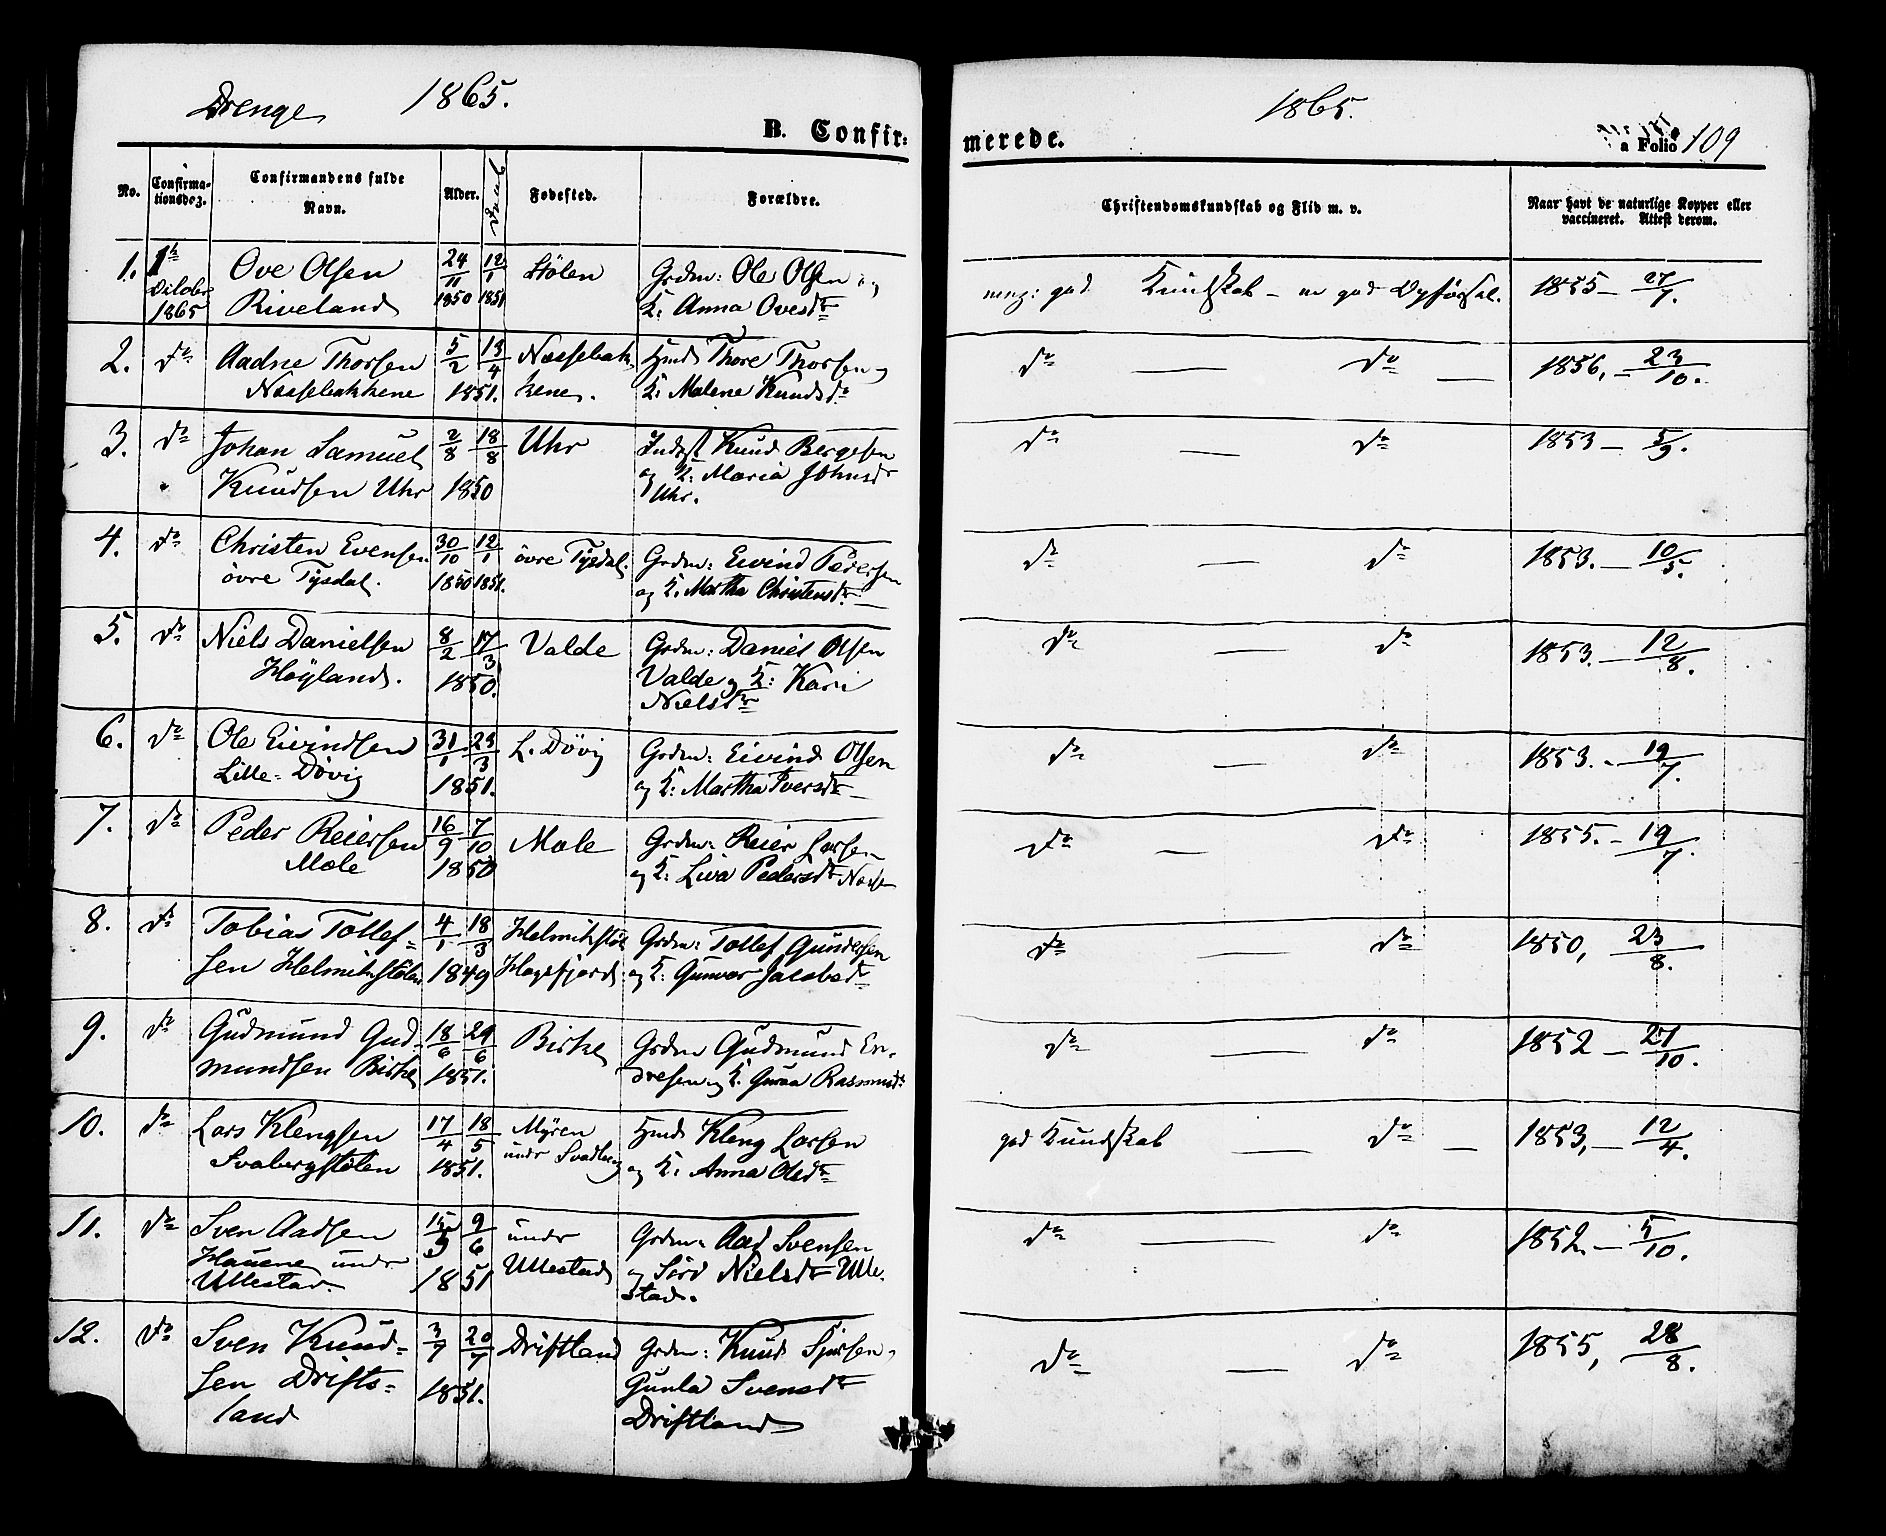 Drenge 1865.
B. Confir:
No. Confirma-tionsdag. Confirmandens fulde Navn. Alder. Daab Fødested. Forældre.
1. 1te October 1865 Ove Olsen 24/11 12/1 Stølen Grdm: Ole Olsen og
Riveland 1850 1851 K: Anna Ovesdr
2. do Aadne Thorsen 5/2 13/4 Næssebak Hmd: Thore Thorsen og
Næssebakkene 1851. kene. K: Malene Knudsdr
3. do Johan Samuel 2/8 18/8 Uhr Inderst Knud Bergesen
Knudsen Uhr 1850 og K: Maria Johnsdr
Uhr.
4. do Christen Evensen 30/10 12/1 øvre Tysdal. Grdm: Eivind Pedersen
øvre Tysdal. 1850 1851. og K. Martha Christensdr
5. do Niels Danielsen 8/2 17/3 Valde Grdm: Daniel Olsen
Høyland. 1850. Valde og K: Kari
Nielsdr
6. do Ole Eivindsen 31/1 23/3 L. Døvig Grdm: Eivind Olsen
Lille-Døvig 1851. og K: Martha Iversdr
7. do Peder Reiersen 16/9 7/10 Mæle Grdm: Reier Larsen
Mæle 1850 og K: Liva Pedersdr
8. do Tobias Tollef= 4/1 18/3 Helmikstøl Grdm: Tollef Gundersen
sen Helmikstølen 1849 Høgsfjord. og K: Gunvor Jacobsdr
9. do Gudmund Gud- 18/6 29/6 Birke Grdm Gudmund En-
mundsen Birke 1851. dresen og K. Guroa Rasmusdr
10. do Lars Klengsen 17/4 18/5 Myren Hmd: Kleng Larsen
Svabergstølen 1851. undr Svadberg og K: Anna Olsdr
11. do Sven Aadsen 15/3 9/6 undr Grdm: Aad Svensen
Hauene undr 1851 Ullestad og Siri Nielsdr Ulle-
Ullestad. stad.
12. do Sven Knud= 3/7 20/7 Driftland Grdm: Knud Sjursen,
sen Drifts= 1851. Gunla Svensdr
land Driftland
1865.
merede. a Folio 109
Christendomskundskab og Flid m. v. Naar havt de naturlige Kopper eller vaccineret. Attest derom.
meg: god Kundskab – m god Opførsel. 1855 – 27/7.
do — do — 1856, – 23/10.
do do 1853 – 5/9.
do — do 1853. – 10/5.
do — do 1853. – 12/8.
do — do 1853. – 19/7.
do — do 1855. – 19/7.
do — do 1850, 23/8.
do — do 1852 – 21/10.
god Kundskab — do — 1853, – 12/4.
do — do 1852. – 5/10.
do — do 1855, 28/8.